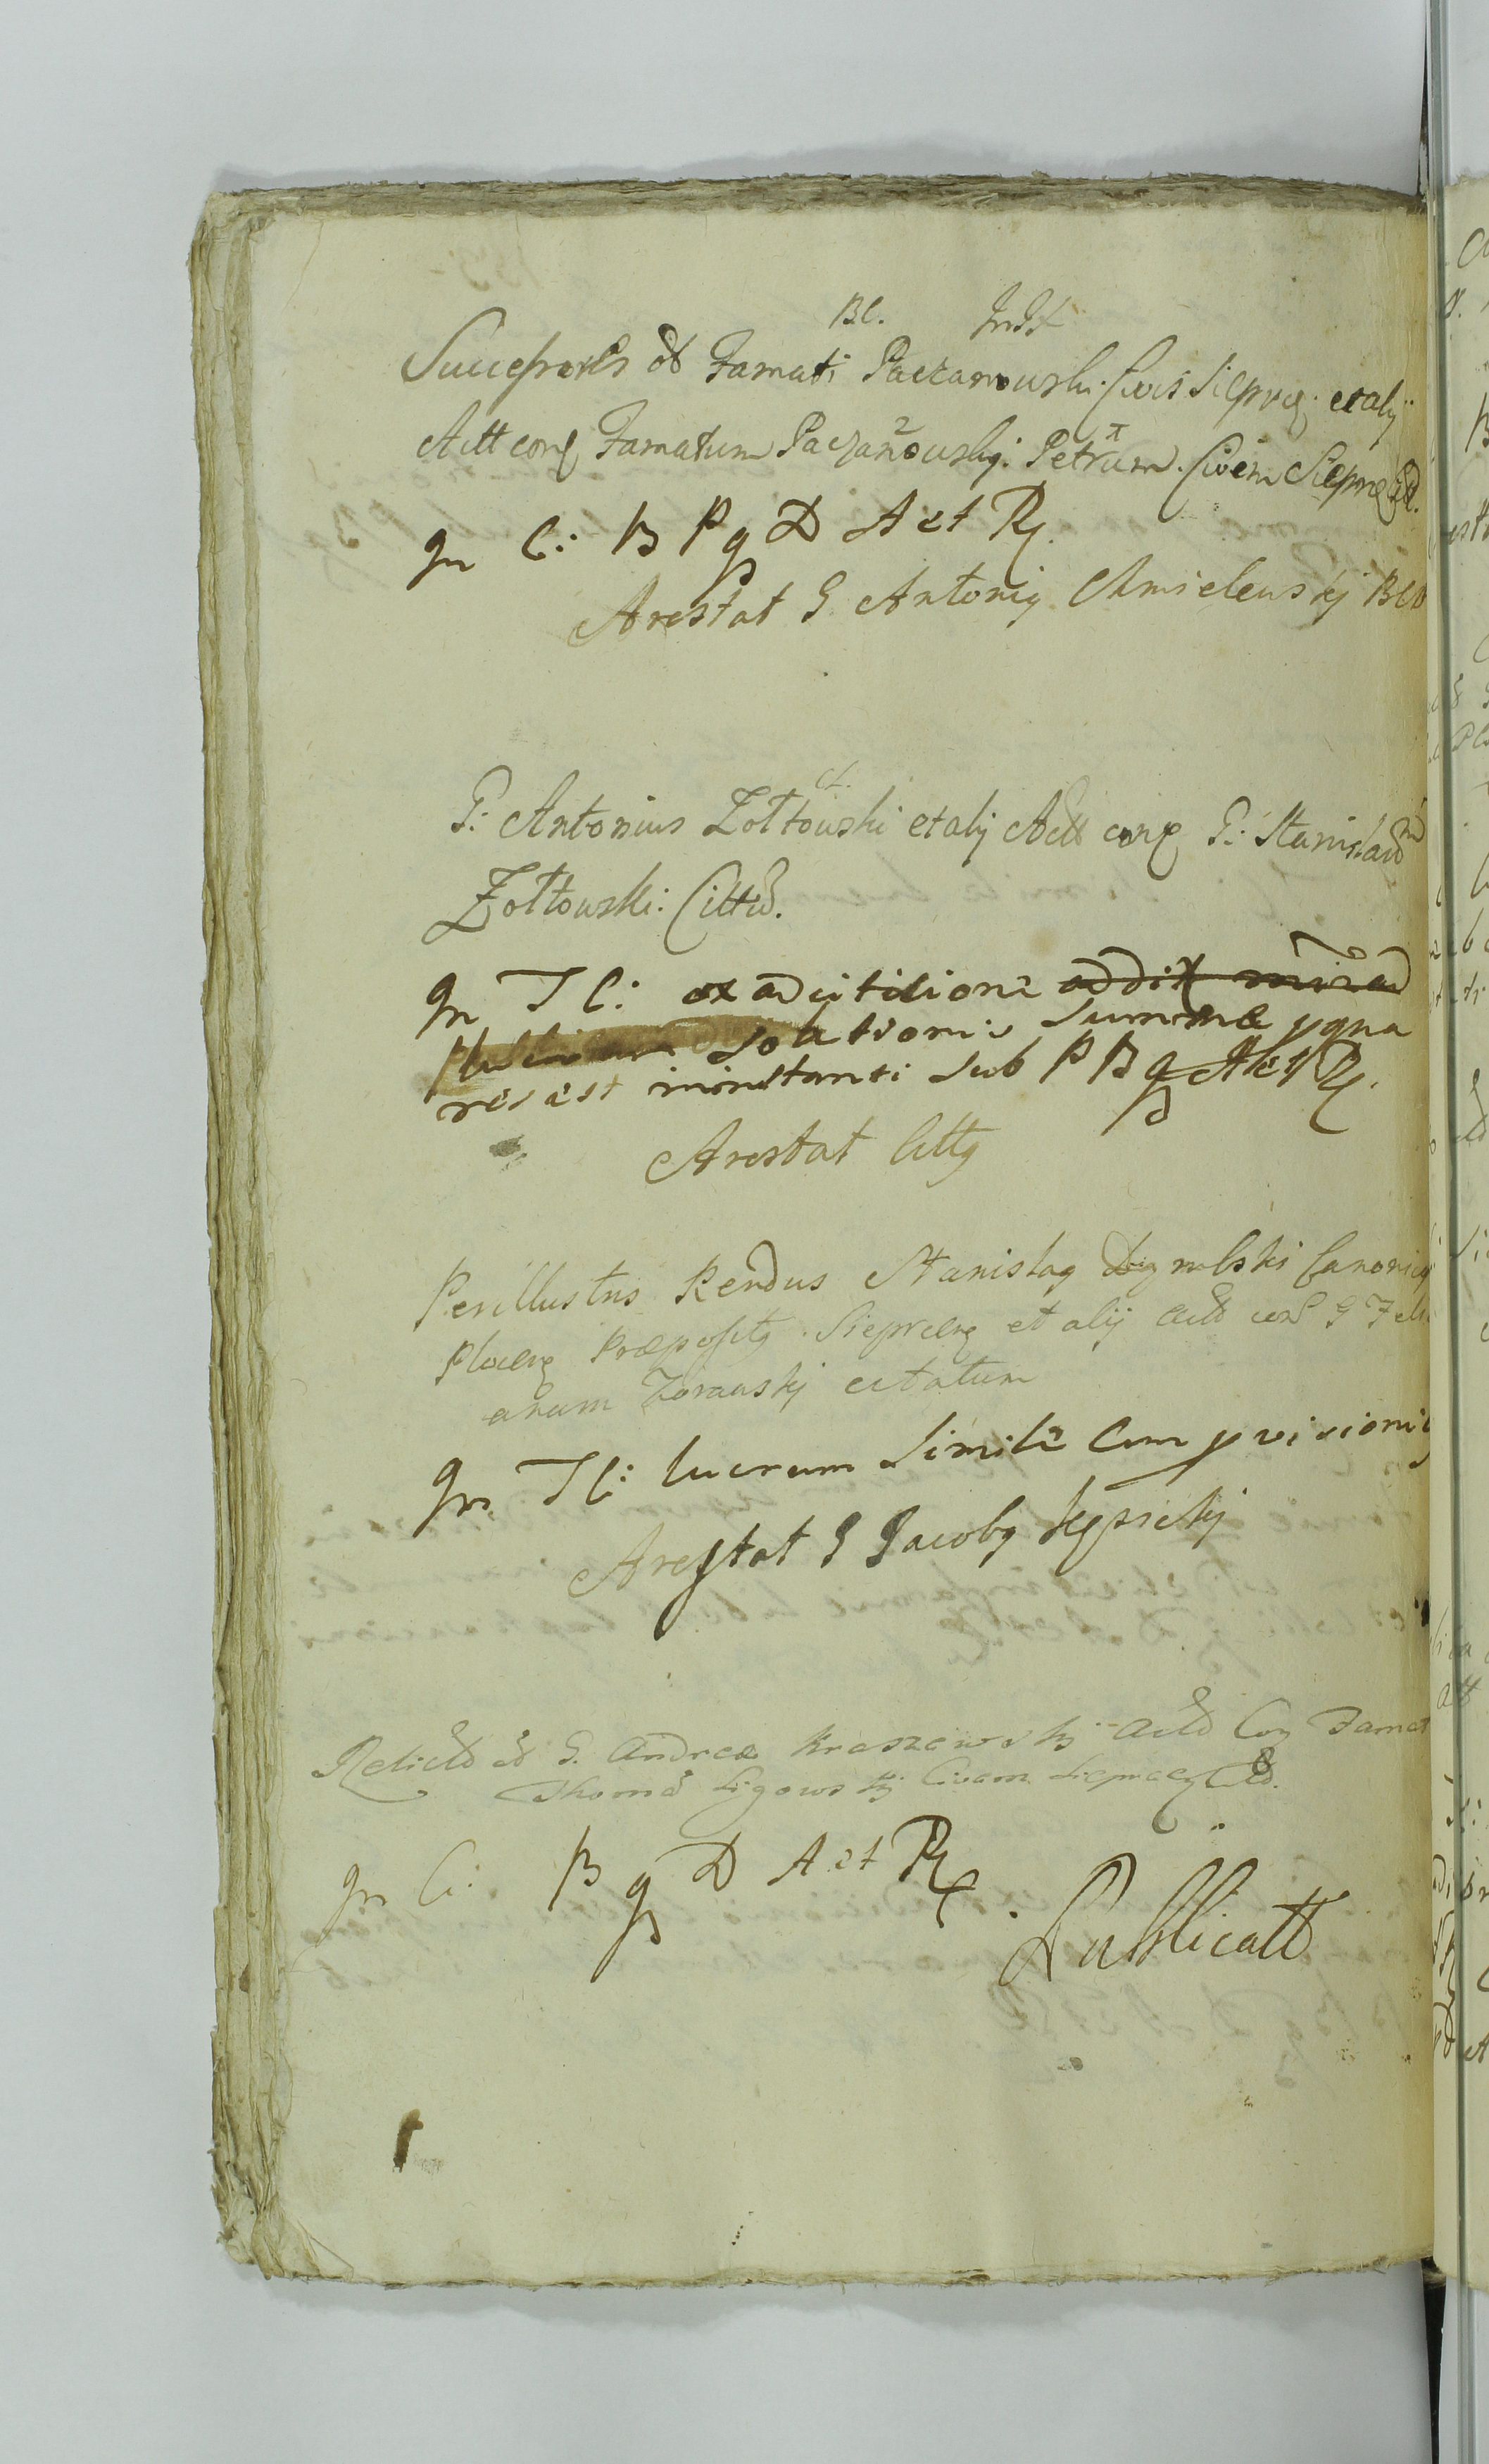 BC. Instt
Successores olb Famati Paczanowski Civis Sieprcg. et alij
Actt conq Famatum Paczanowskj. Petrum. Civem Sieprcg Citt.
In C: B P q D A et R.
Arestat G Antoniq Chmielewskj BC
Ct.
G: Antonius Zołtowski et alij Actt conq G: Stanislaum
Zołtowski: Cittm.
In T C: ex adcitatione
solutionis summæ p qua
res est in instanti sub P B q A et R.
Arestat Cittq
Perillustris Rendus Stanislaq Canoniq
Plocenq Præpositq Sieprcenq et alij actt con G Feli
anum Zorawskj citatum
In T C: lucrum simile Cum pvisioniq
Arestat G Jacobq Kęsickj
Relictt olb G. Andreæ Kraszewskj actt Con Famat
Thomam Ligowskj Civem Sieprcenq Citt.
In C: B q D A et R.
Publicatt